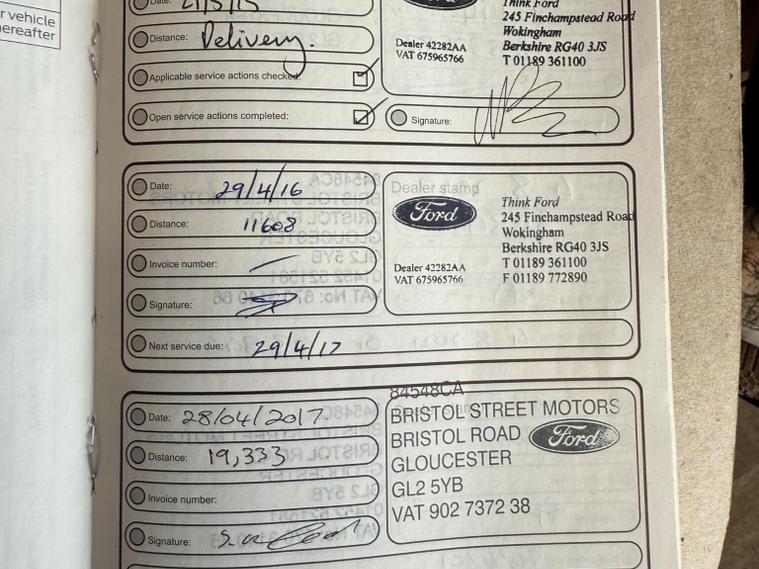 r vehicle
hereafter
Date:
Distance: Delivery.
Applicable service actions checked:
Open service actions completed:
Think Ford
245 Finchampstead Road
Wokingham
Berkshire RG40 3JS
T 01189 361100
Dealer 42282AA
VAT 675965766
Signature:
Date: 29/4/16
Distance: 11608
Invoice number:
Signature:
Next service due: 29/4/17
Dealer stamp
Ford
Think Ford
245 Finchampstead Road
Wokingham
Berkshire RG40 3JS
T 01189 361100
F 01189 772890
Dealer 42282AA
VAT 675965766
Date: 28/04/2017
Distance: 19,333
Invoice number:
Signature:
84548CA
BRISTOL STREET MOTORS
BRISTOL ROAD
Ford
GLOUCESTER
GL2 5YB
VAT 902 7372 38